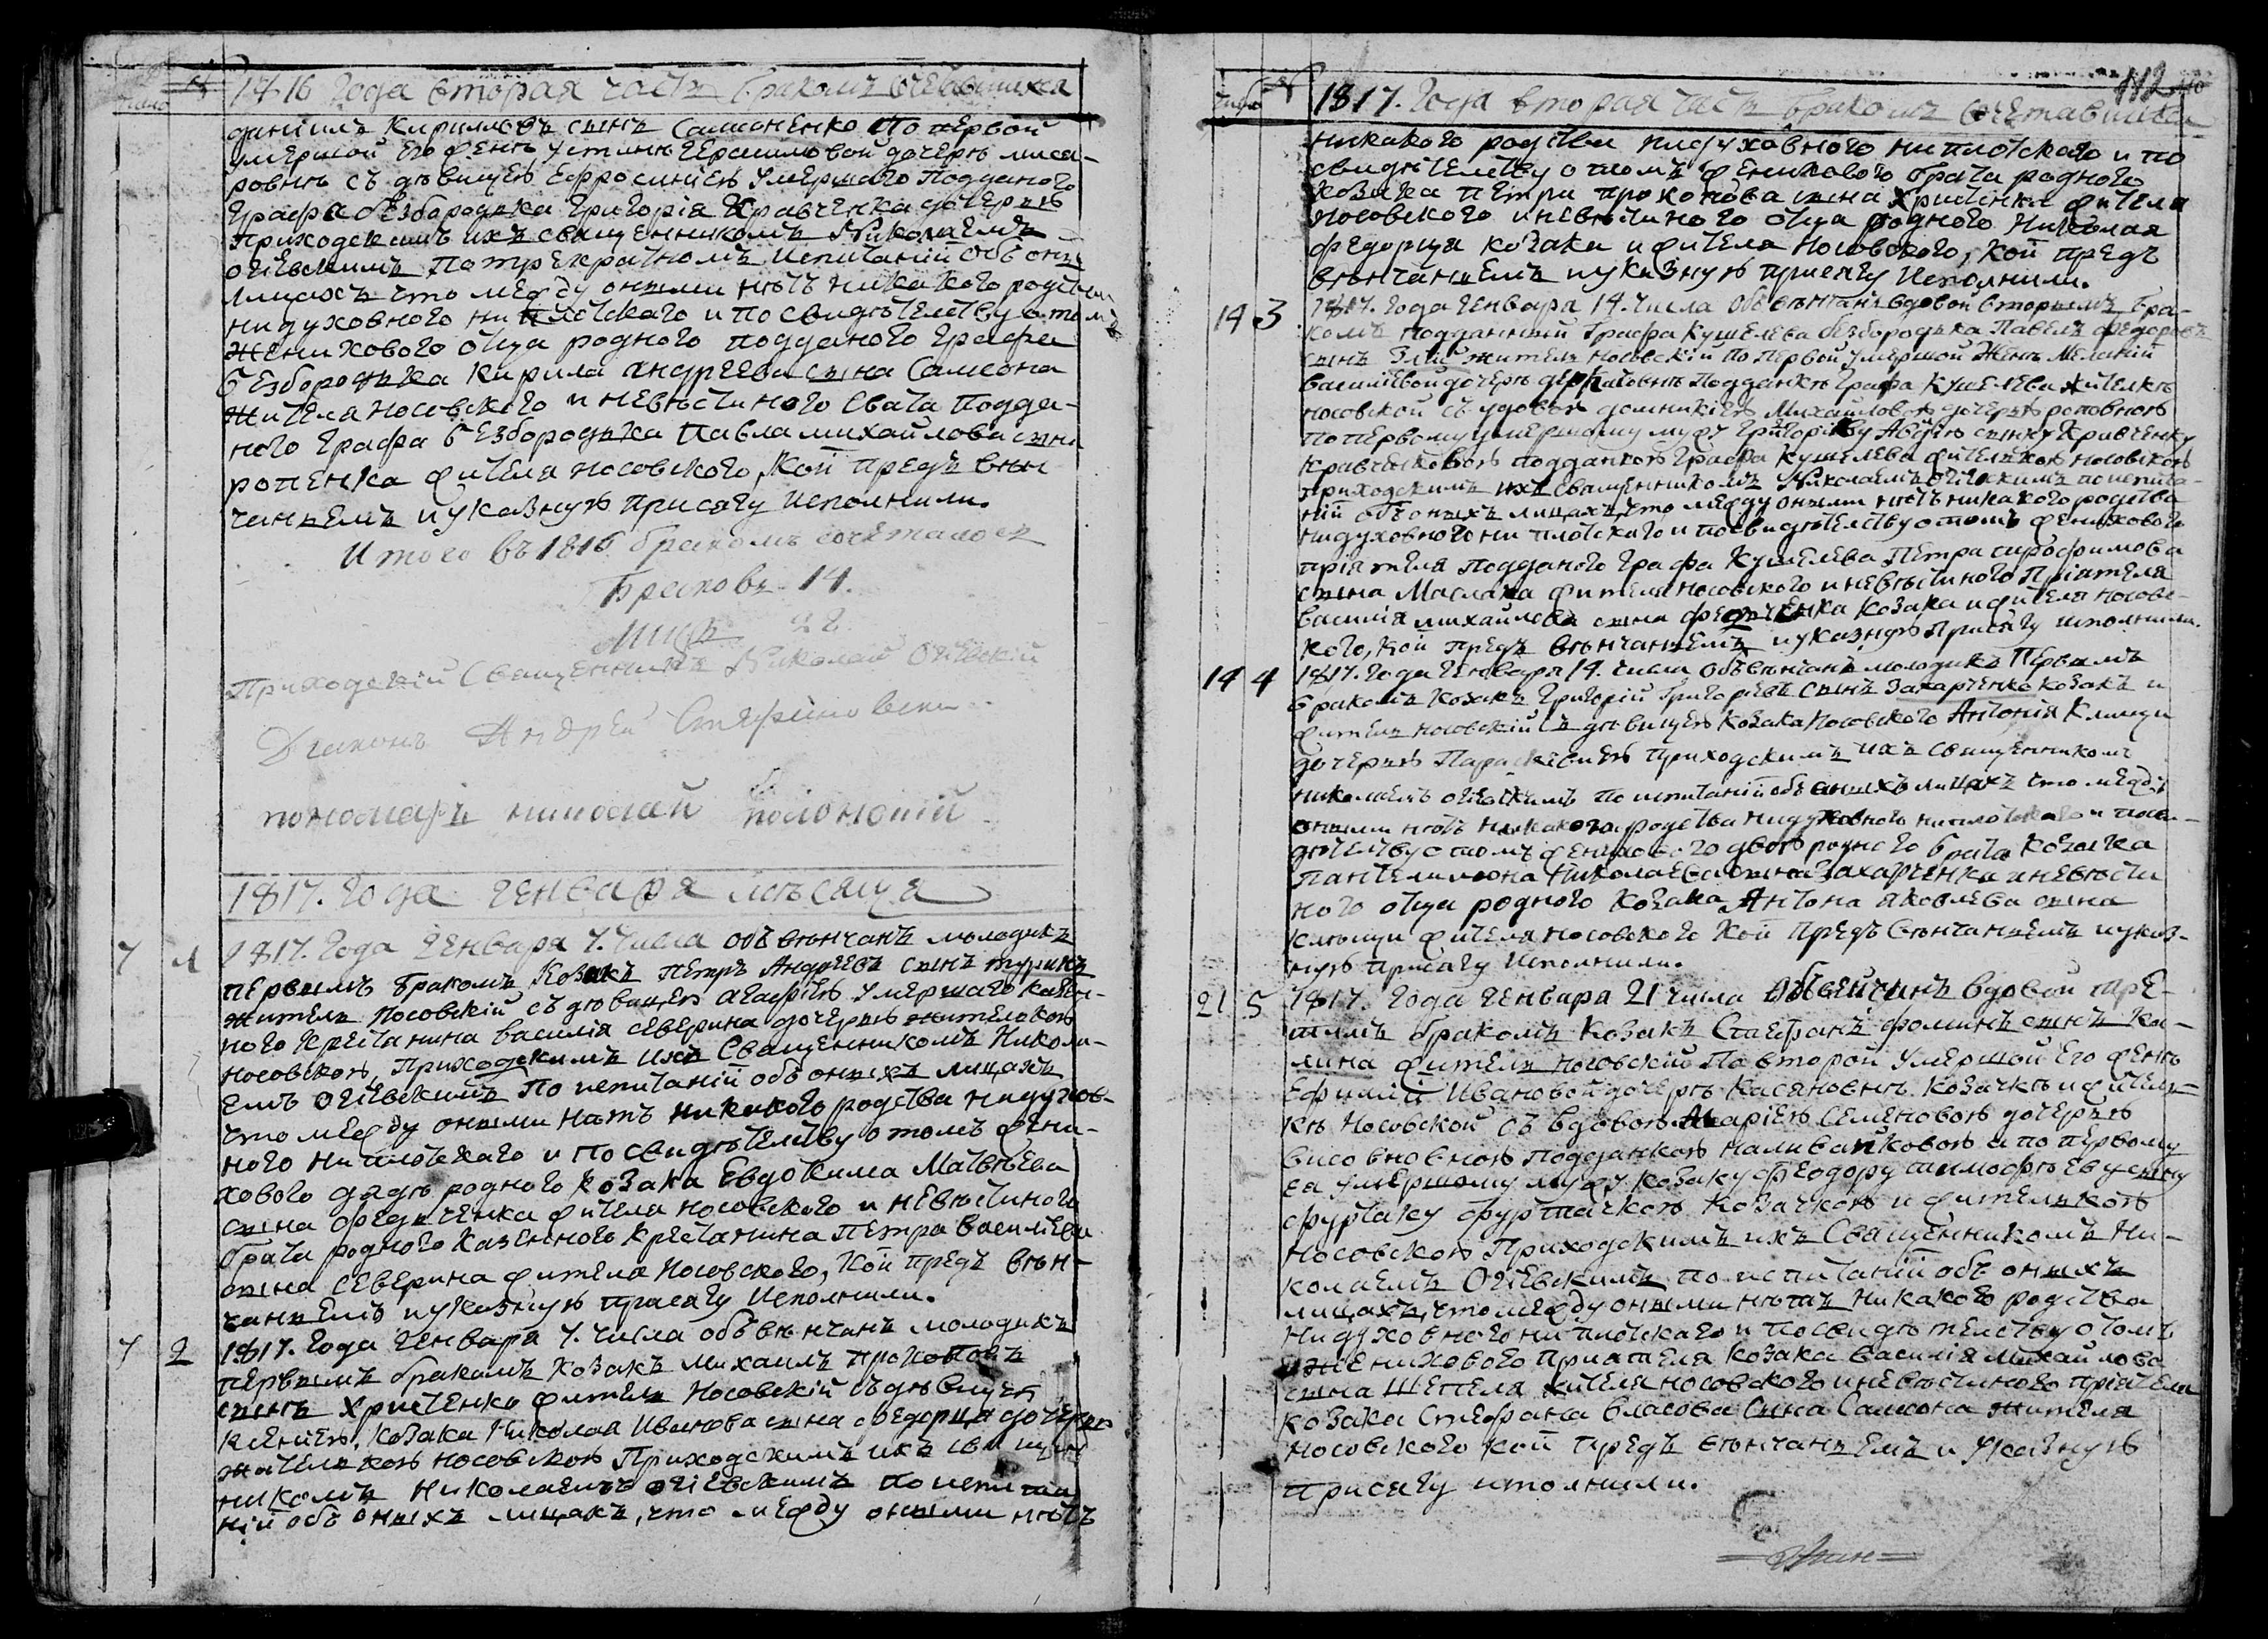 число №
1816 Года вторая часть Бракомъ сочетавшихся
даниилъ Кириловъ сынъ Самоненко По первой
умершой Его Женѣ Устинѣ Герасимовой дочерѣ
ровнѣ съ дѣвицеѣ Ефросиниеѣ Умершаго Подданого
Графа безбородька Григорія Кравченка дочерьѣ
Приходскимъ ихъ священникомъ Николаемъ
Огіевскимъ По трекратномъ испитаніи объ оныхъ
лицахъ что между оными нѣтъ никакого родства
ни духовного ни плотского и по свидѣтелству о томъ
Женихового отца родного подданого Графа
безбородька Кирила Андреева сына Самсона
Жителя носовского и невѣстиного Свата Подда-
ного Графа безбородька Павла михайлова сына
ропенка жителя носовского, Кои предъ вѣн
чаньемъ и указнуѣ присягу исполнили.
Итого въ 1816 бракомъ сочеталося
Браковъ 14.
Лицъ 28
Приходскій Священникъ Николай Огіевскій
Діаконъ Андрей
пономарь николай Полонскій
1817. Года генваря мѣсяца
7 1 1817. Года Генваря 7. Числа объвѣнчанъ молодикъ
первымъ бракомъ Козакъ Петръ Андреевъ сынъ турикъ
житель Носовский съ дѣвицеѣ Агафиеѣ Умершаго казен-
ного Крестянина василія Северина дочерьѣ жителкоѣ
носовскоѣ, Приходскимъ ихъ Священникомъ Никола-
емъ Огіевскимъ По испитаніи объ оныхъ лицахъ
что между оными натъ никакого родства ни духов-
ного ни плотскаго и По свидѣтелству о томъ жени-
хового дядѣ родного козака Евдокима Матвѣева
сына федьченка жителя носовского и невѣстиного
брата родного Казенного Крестянина Петра василіева
сына Северина жителя Носовского, Кои предъ вѣн-
чаньемъ и указнуѣ присягу исполнили.
7 2 1817. Года Генваря 7. Числа объвѣнчанъ молодикъ
первымъ бракомъ козакъ михаилъ прокоповъ
сынъ Христенко житель Носовскій съ дѣвицеѣ
Ксениеѣ, козака Николая Иванова сына федорца дочерьѣ
Жителькоѣ носовскоѣ Приходскимъ ихъ священ
никомъ Николаемъ огіевскимъ по испита
ніи объ оныхъ лицахъ, что между оными нѣтъ
число №
1817. Года вторая часть бракомъ сочетавшихся
112
никакого родства ни духовного ни плотскаго и по
свидѣтелству о томъ женихового брата родного
козака петра прокопова сына Христенка жителя
Носовского и невѣстиного отца родного Николая
федорца козака и жителя Носовского, Кои предъ
вѣнчаньемъ и указнуѣ присягу исполнили.
14 3 1817. Года Генваря 14. Числа объвѣнчанъ вдовой вторымъ бра-
комъ подданный Графа Кушелева безбородька Павелъ федоровъ
сынъ Зліи житель носовскій по Первой умершой Женѣ Меланіи
василіевой дочерѣ Подданкѣ Графа Кушелева жителкѣ
носовской съ удовоѣ домникіеѣ Михайловоѣ дочерьѣ роповноѣ
по первому умершому мужу Григорію сынку Кравченку
Кравченковоѣ подданкоѣ Графа Кушелева жителькоѣ носовскоѣ
приходскимъ ихъ священникомъ Николаемъ огіевскимъ по испита-
ніи объ оныхъ лицахъ, что между оными нѣтъ никакого родства
ни духовного ни плотскаго и по свидѣтелству о томъ женихового
пріятеля подданого Графа Кушелева Петра трофимова
сына Маслака жителя носовского и невѣстиного Пріателя
василія михайлова сына федченка козака и жителя носовс-
кого, кои предъ вѣнчаньемъ и указнуѣ Присягу исполнили.
14 4 1817. Года Генваря 14. Числа объвѣнчанъ молодикъ Первымъ
бракомъ козакъ Григорій Григоріевъ сынъ Захарченко козакъ и
житель носовскій съ дѣвицеѣ козака носовского Антонія Климци
дочерьѣ Параскевиеѣ Приходскимъ ихъ священникомъ
николаемъ огіевскимъ по испитаніи объ оныхъ лицахъ что между
оными нѣтъ никакого родства ни духовного ни плотскаго и посви-
дѣтелству о томъ женихового двоюродного брата козака
Пантелимона Николаева сына Захарченка и невѣсти
ного отца родного козака Антона Яковлева сына
климци жителя носовского кои предъ вѣнчаньемъ и указ-
нуѣ присягу исполнили.
21 5 1817. Года Генваря 21 числа объвѣнчанъ вдовой тре-
тимъ бракомъ козакъ Стефанъ фоминъ сынъ Ка-
лина житель носовскій По второй умершой его женѣ
Ефиміи Ивановой дочерѣ Касяновнѣ козачкѣ и житель-
кѣ Носовской съ вдовоѣ Маріеѣ Семеновоѣ дочерьѣ
подданкоѣ Наливайковоѣ и по первому
еа умершому мужу козаку феодору тимофѣеву сыну
фурсаку козачкоѣ и жителькоѣ
носовскоѣ Приходскимъ ихъ Священникомъ Ни-
колаемъ Огіевскимъ по испитаніи объ оныхъ
лицахъ, что между оными нѣтъ никакого родства
ни духовного ни плотскаго и по свидѣтелству о томъ
Женихового приятеля козака василія михайлова
сына Шепеля жителя носовского и невѣстиного пріятеля
козака Стефана власова сына Самсона жителя
носовского кои предъ вѣнчаньемъ и указнуѣ
присягу исполнили.